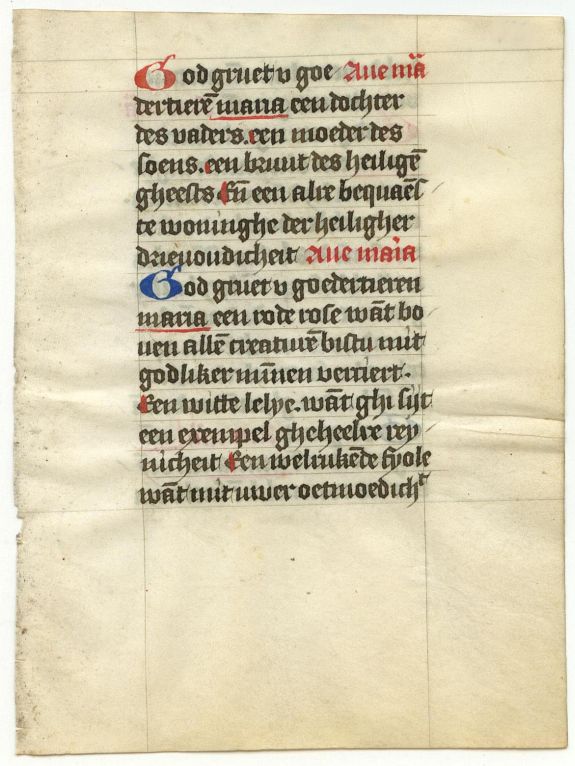 God gruet v goe Aue mā̃
dertierē maria een dochter
des vaders. een moeder des
soens. een bruut des heiligē
gheests Eñ een alre bequaēs
te woninghe der heiligher
drieuoudicheit Aue maīa
God gruet v goedertieren
maria een rode rose wāt bo
uen allē creaturē bistu mit
godliker mīnen verciert.
Een witte lelye. wāt ghi sijt
een exempel gheheelre rey
nicheit Een welrukēde fyole
wāt mit uwer oetmoedichᵗ